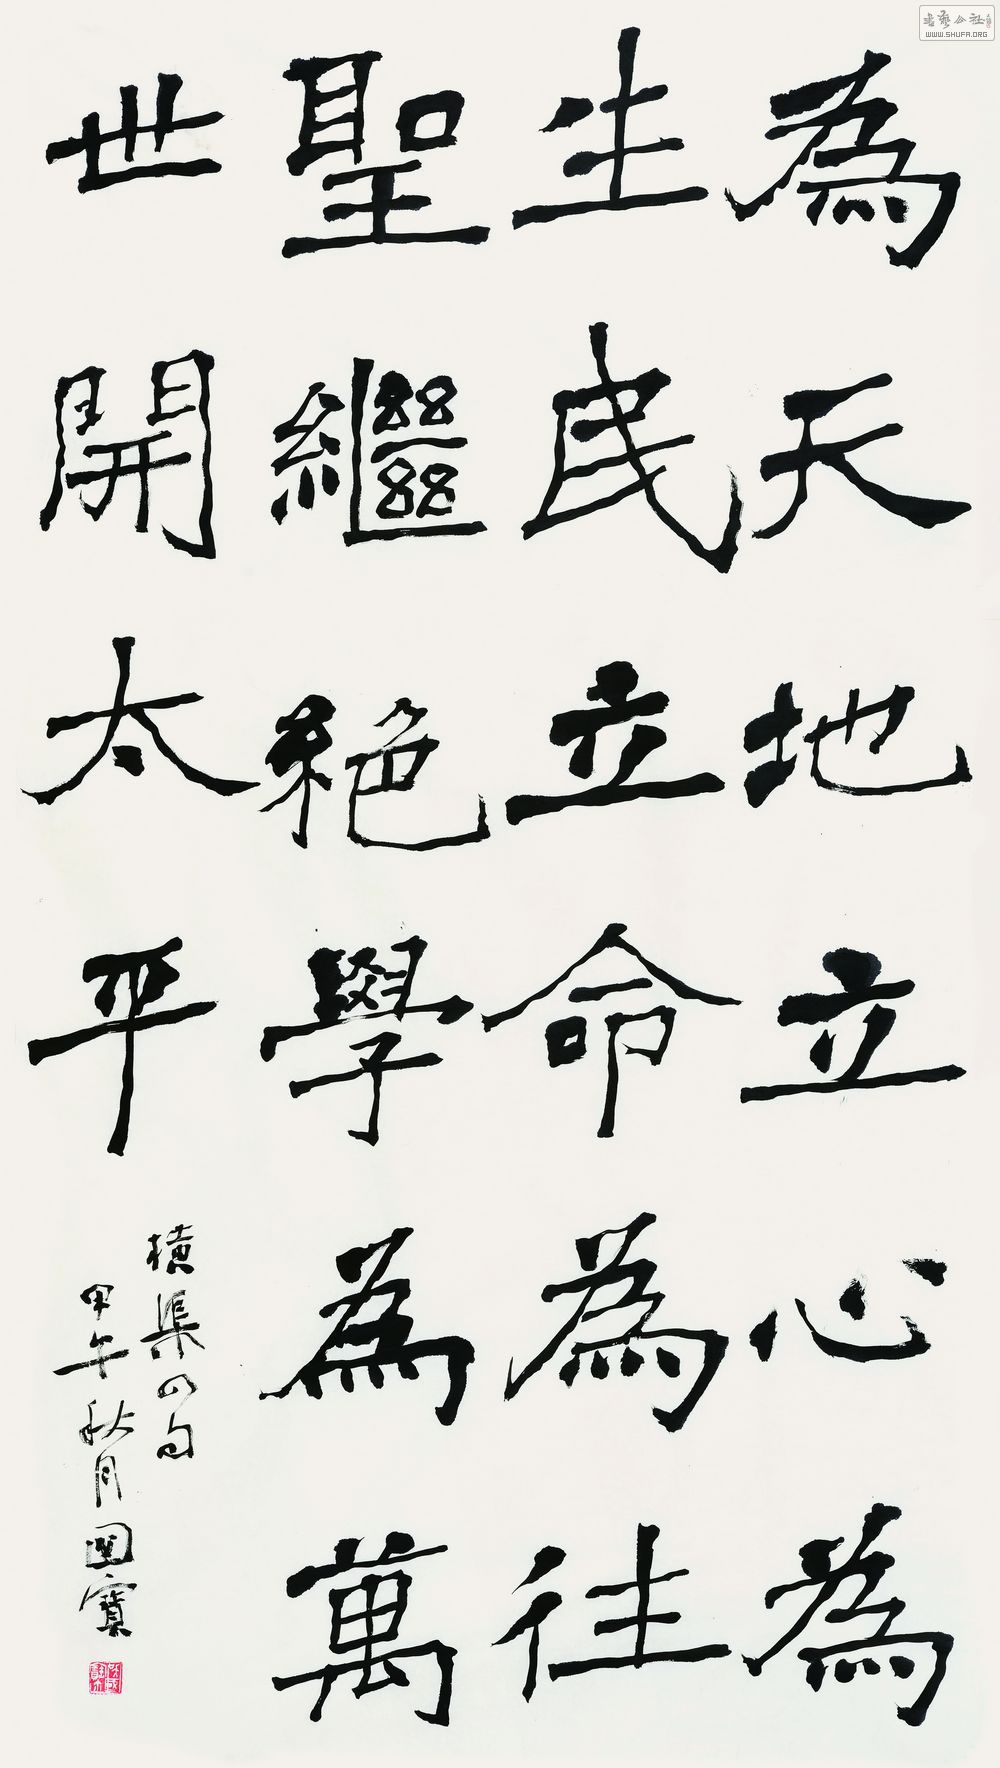 為天地立心為
生民立命為往
聖繼絕學為萬
世開太平
橫渠四句
甲午秋月國寶
書藝公社
WWW.SHUFA.ORG